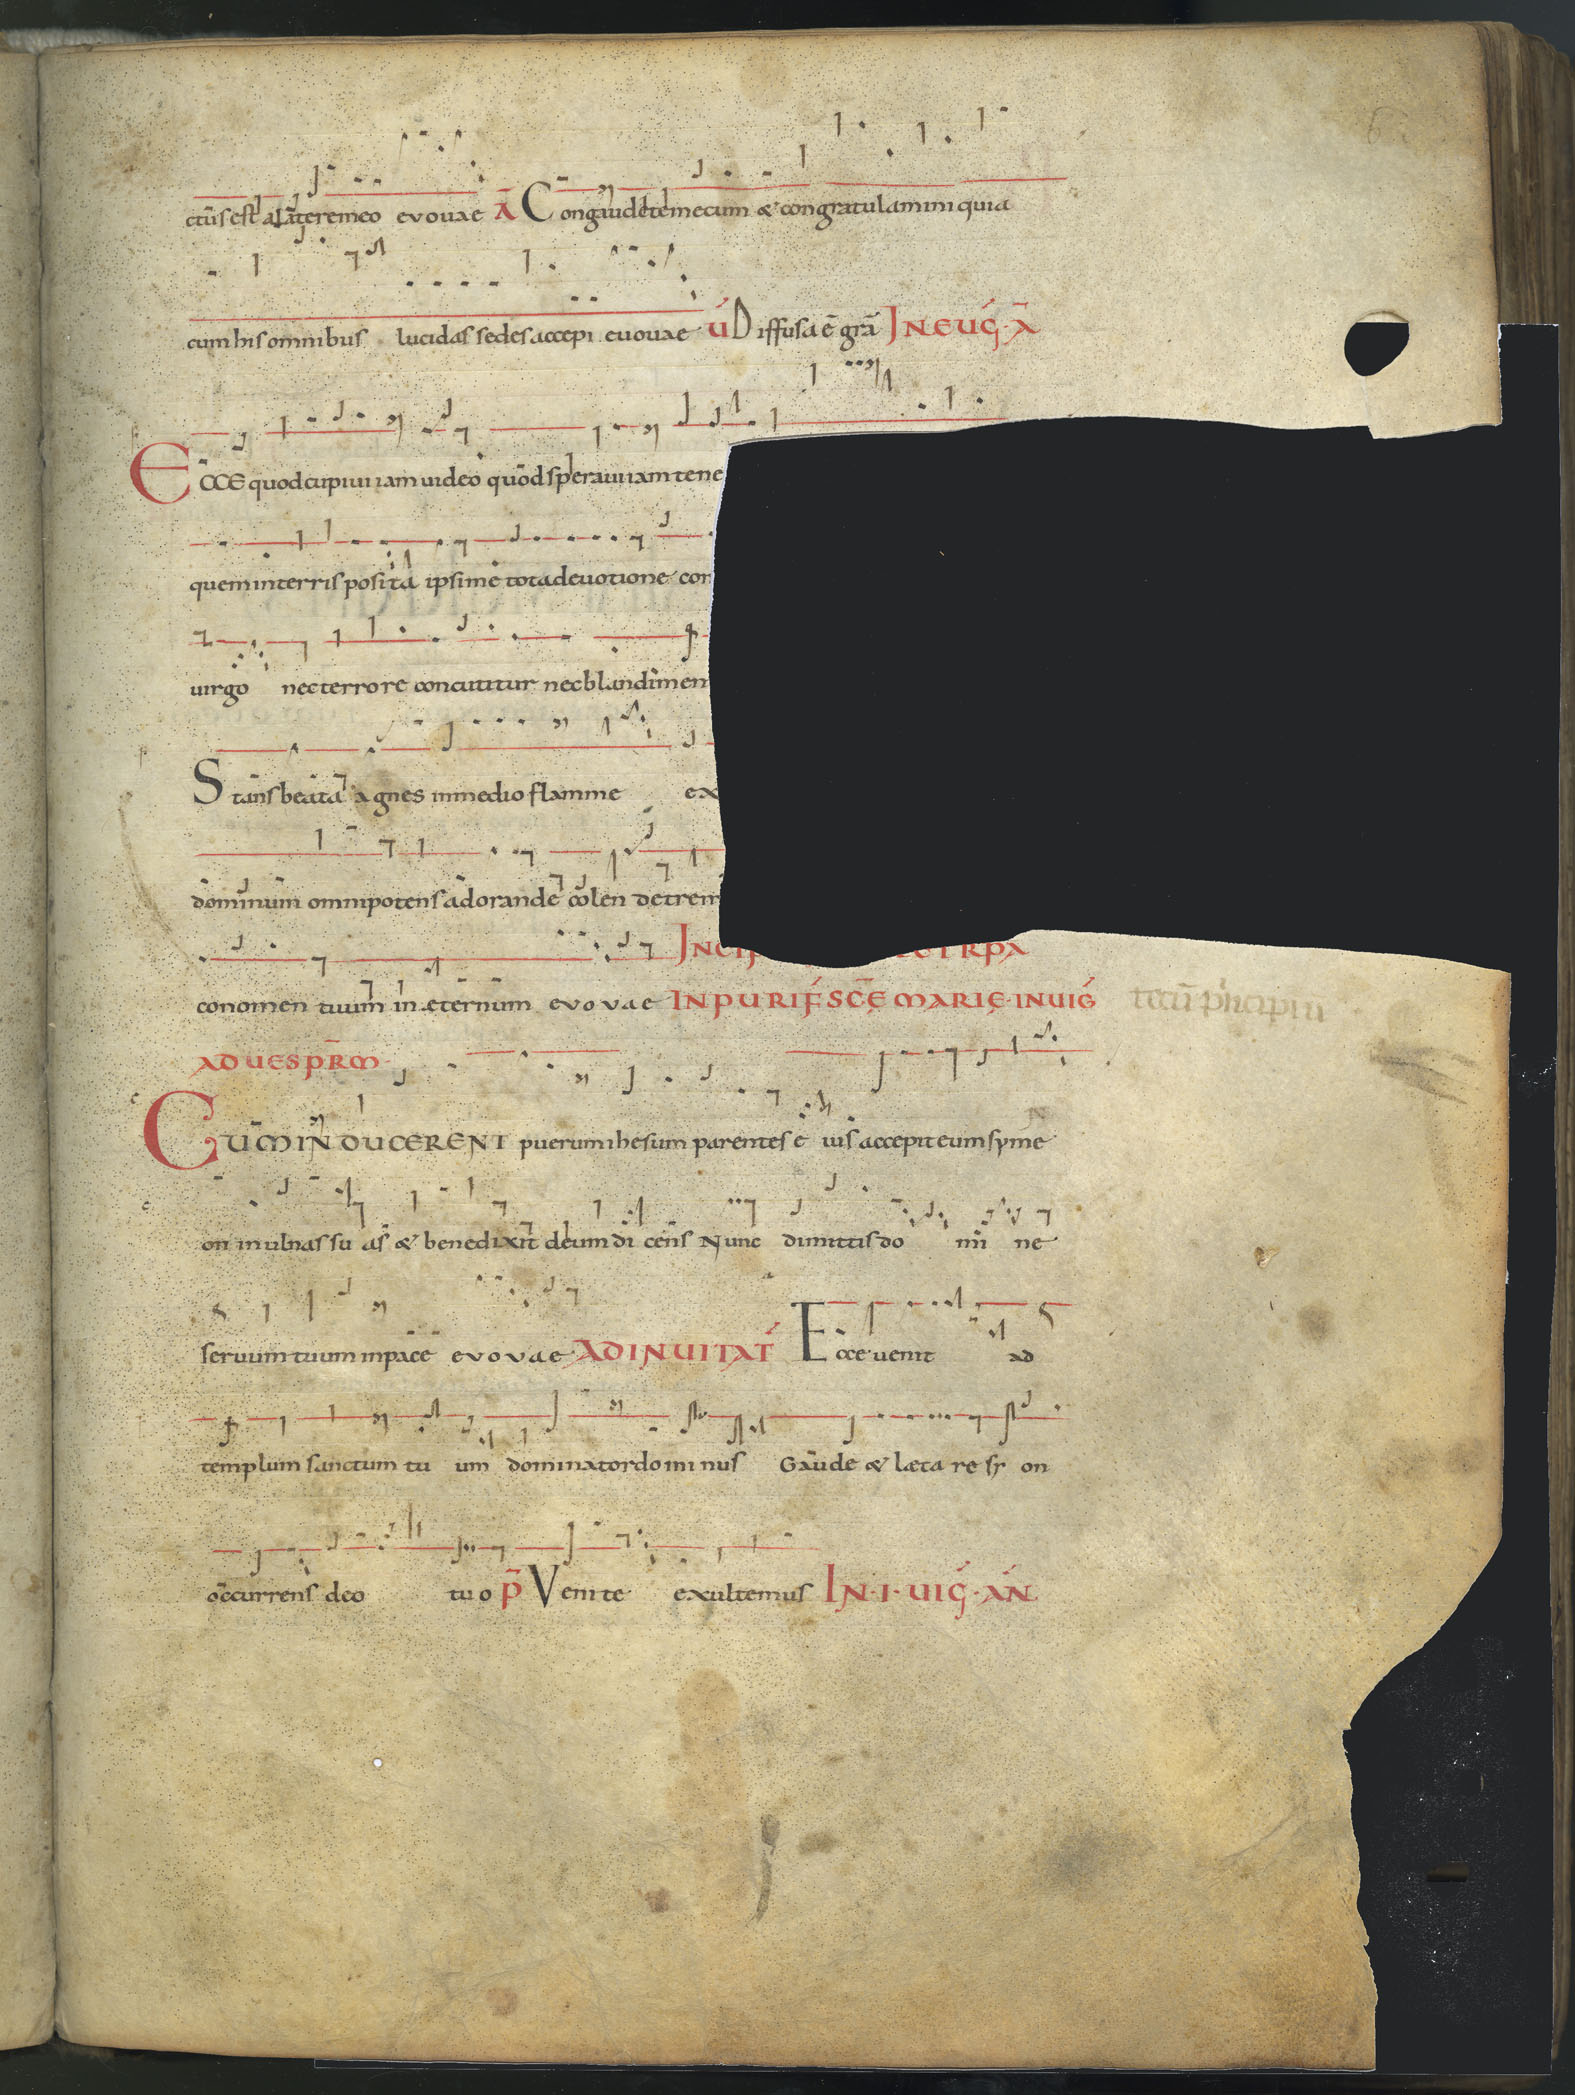 ctus est a latere meo evovae Ā Congaudete mecum & congratulamini quia
cum his omnibus lucidas sedes accepi euouae V́ Diffusa ē grā IN EUḠ. Ā
ECCE quod cupiui iam uideo quod speraui iam tene
quem in terris posita ipsi me tota deuotione con
uirgo nec terrore concutitur nec blandimen
Stans beata agnes in medio flamme ex
dominum omnipotens adorande colen de trem
co nomen tuum in æternum evovae IN PURIF́ SCĒ MARIĘ. IN UIḠ
AD UESPRM
CUM INDUCERENT puerum ihesum parentes e ius accepit eum syme
on in ulnas su as & benedixit deum di cens Nunc dimittis do mi ne
seruum tuum in pace evovae AD INUITAT́ Ecce uenit ad
templum sanctum tu um dominator do mi nus Gaude & læta re sy on
occurrens deo tuo P̄ Venite exultemus IN. I. UIḠ. AŃ